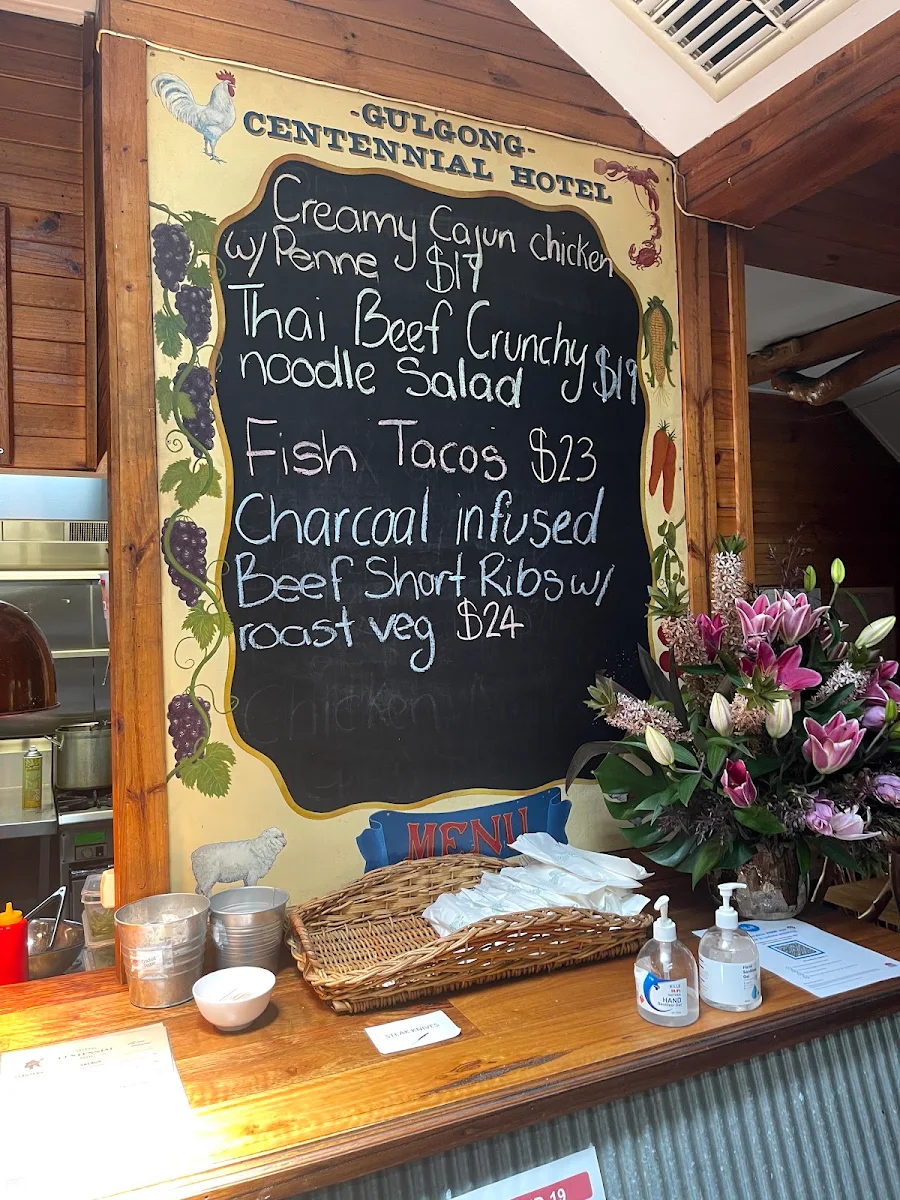 -GULGONG-
CENTENNIAL HOTEL
Creamy Cajun chicken
w/ Penne $17
Thai Beef Crunchy
noodle Salad $19
Fish Tacos $23
Charcoal infused
Beef Short Ribs w/
roast veg $24
Chicken
MENU
STEAK KNIVES
CENTENNIAL
HAND